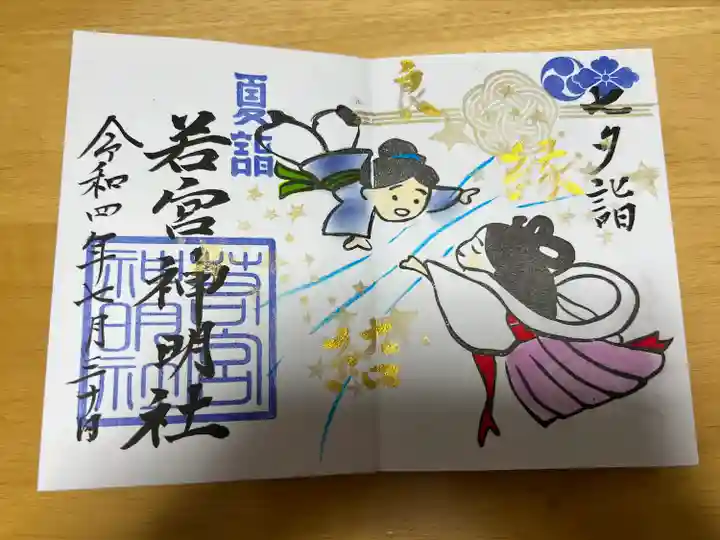 七夕詣
良
縁
結
夏詣
若宮神明社
若宮
神明社
令和四年七月三十日